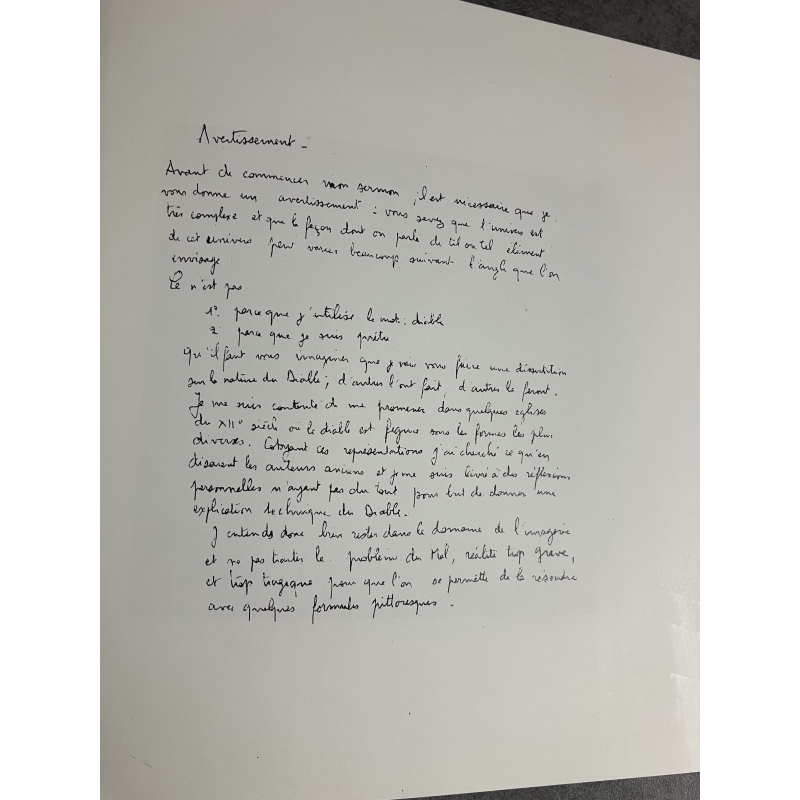 Avertissement -
Avant de commencer mon sermon, il est nécessaire que je
vous donne un avertissement : vous savez que l'univers est
très complexe et que la façon dont on parle de tel ou tel élément
de cet univers peut varier beaucoup suivant l'angle que l'on
envisage
Ce n'est pas
1° parce que j'utilise le mot : diable
2 parce que je suis prêtre
qu'il faut vous imaginer que je vais vous faire une dissertation
sur la nature du Diable ; d'autres l'ont fait, d'autres le feront.
Je me suis contenté de me promener dans quelques églises
du XII° siècle où le diable est figuré sous les formes les plus
diverses. Cotoyant ces représentations j'ai cherché ce qu'en
disaient les auteurs anciens et je me suis livré à des réflexions
personnelles n'ayant pas du tout pour but de donner une
explication technique du Diable.
J'entends donc bien rester dans le domaine de l'imagerie
et ne pas traiter le problème du Mal, réalité trop grave,
et trop tragique pour que l'on se permette de la résoudre
avec quelques formules pittoresques.